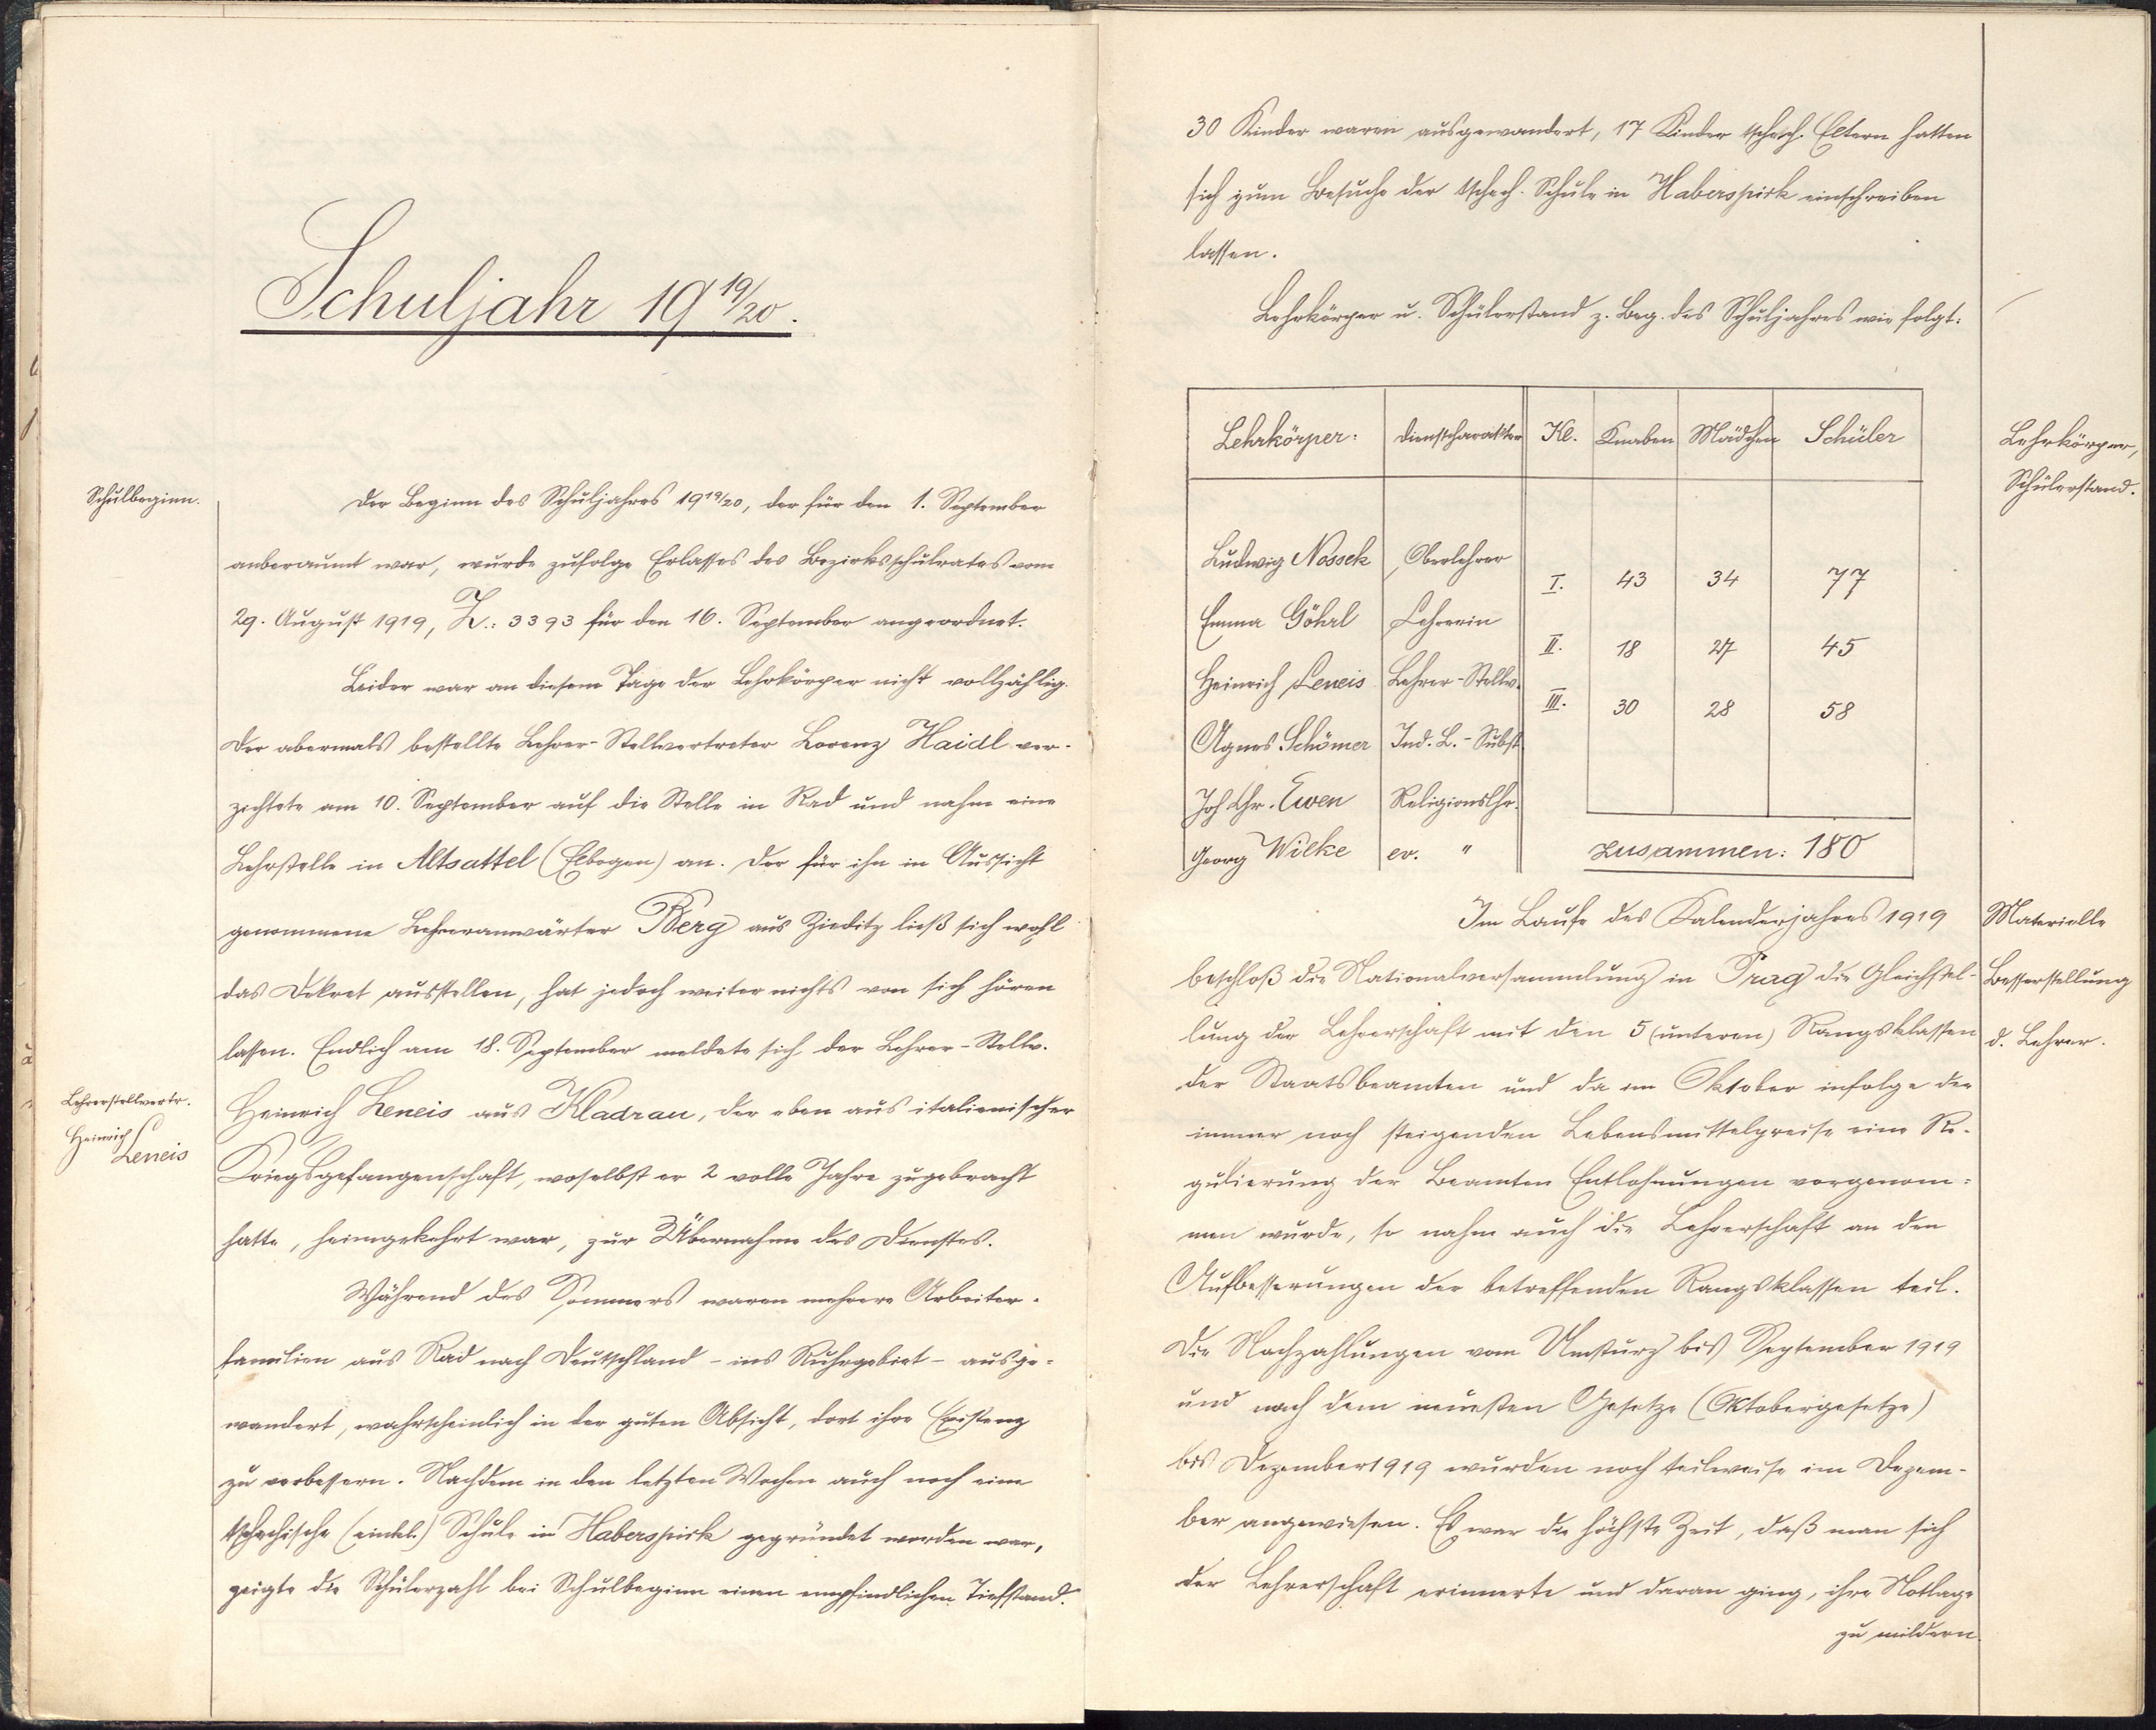 Schuljahr 19 19/20.
Schulbeginn.
Der Beginn des Schuljahres 19 19/20, der für den 1. September
anberaumt war, wurde zufolge Erlasses des Bezirksschulrates vom
29. August 1919, Z.: 3393 für den 16. September angeordnet.
Leider war an diesem Tage der Lehrkörper nicht vollzählig.
Der abermals bestellte Lehrer-Stellvertreter Lorenz Haidl ver-
zichtete am 10. September auf die Stelle in Rad und nahm eine
Lehrstelle in Altsattel (Elbogen) an. Der für ihn in Aussicht
genommene Lehreranwärter Berg aus Zieditz ließ sich wohl
das Dekret ausstellen, hat jedoch weiter nichts von sich hören
lassen. Endlich am 18. September meldete sich der Lehrer-Stellv.
Lehrerstellvertr.
Heinrich
Leneis
Heinrich Leneis aus Kladrau, der eben aus italienischer
Kriegsgefangenschaft, woselbst er 2 volle Jahre zugebracht
hatte, heimgekehrt war, zur Übernahme des Dienstes.
Während des Sommers waren mehrere Arbeiter-
familien aus Rad nach Deutschland - ins Ruhrgebiet - ausge-
wandert, wahrscheinlich in der guten Absicht, dort ihre Existenz
zu verbessern. Nachdem in den letzten Wochen auch noch eine
tschechische (einkl.) Schule in Haberspirk gegründet worden war,
zeigte die Schülerzahl bei Schulbeginn einen empfindlichen Tiefstand.
30 Kinder waren ausgewandert, 17 Kinder tschech. Eltern hatten
sich zum Besuche der tschech. Schule in Haberspirk einschreiben
lassen.
Lehrkörper u. Schülerstand z. Beg. des Schuljahres wie folgt:
Lehrkörper: Dienstcharakter Kl. Knaben Mädchen Schüler
Lehrkörper,
Schülerstand.
Ludwig Nossek Oberlehrer
I. 43 34 77
Emma Göhrl Lehrerin
II. 18 27 45
Heinrich Leneis Lehrer-Stellv.
III. 30 28 58
Agnes Schömer Ind. L.-Subst.
Joh. Chr. Ewen Religionslhr.
Georg Wilke ev. "
zusammen: 180
Im Laufe des Kalenderjahres 1919
Materielle
beschloß die Nationalversammlung in Prag die Gleichstel-
Besserstellung
lung der Lehrerschaft mit den 5 (unteren) Rangsklassen
d. Lehrer.
der Staatsbeamten und da im Oktober infolge der
immer noch steigenden Lebensmittelpreise eine Re-
gulierung der Beamten Entlohnungen vorgenom-
men wurde, so nahm auch die Lehrerschaft an den
Aufbesserungen der betreffenden Rangsklassen teil.
Die Nachzahlungen vom Umsturz bis September 1919
und nach dem neuesten Gesetze (Oktobergesetze)
bis Dezember 1919 wurden noch teilweise im Dezem-
ber angewiesen. Es war die höchste Zeit, daß man sich
der Lehrerschaft erinnerte und daran ging, ihre Notlage
zu mildern.